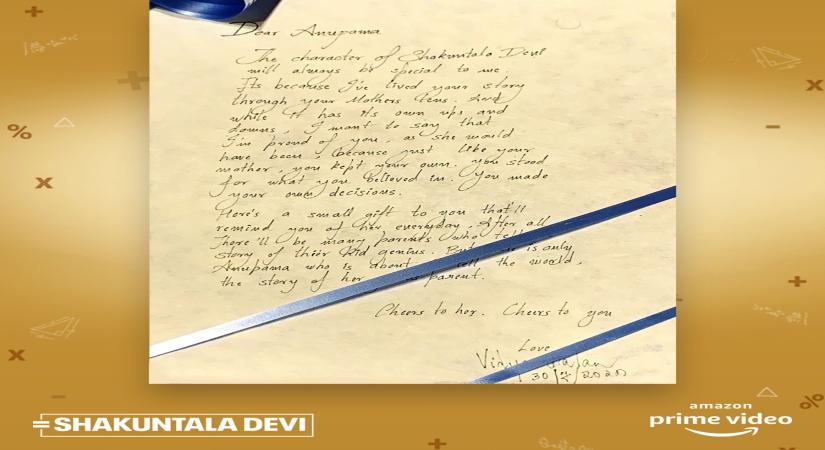 Dear Anupama
The character of Shakuntala Devi
will always be special to me.
Its because I've lived your story
through your Mothers lens. And
while it has its own ups and
downs, I want to say that
I'm proud of you, as she would
have been, because just like your
mother, you kept your own. You stood
for what you believed in. You made
your own decisions.
Here's a small gift to you that'll
remind you of her everyday. After all
There'll be many parents who tell
story of thier kid genius. But is only
Anupama who is about tell the world,
the story of her parent.
Cheers to her. Cheers to you
Love
30/7/2020
=SHAKUNTALA DEVI
amazon
prime video